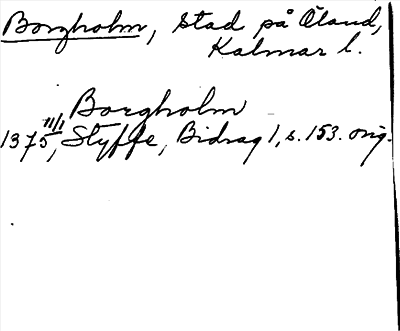 Borgholm, stad på Öland,
Kalmar l.
Borgholm
1375 11/1, Styffe, Bidrag 1, s. 153. orig.